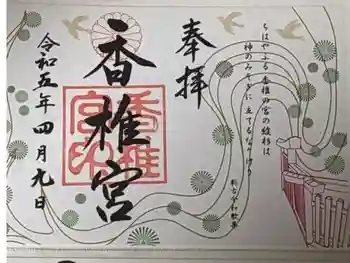 奉拝
ちはやふる 香椎の宮の綾杉は
神のみそぎに 立てるなりけり
新古今和歌集
香椎宮
香椎宮印
令和五年四月九日